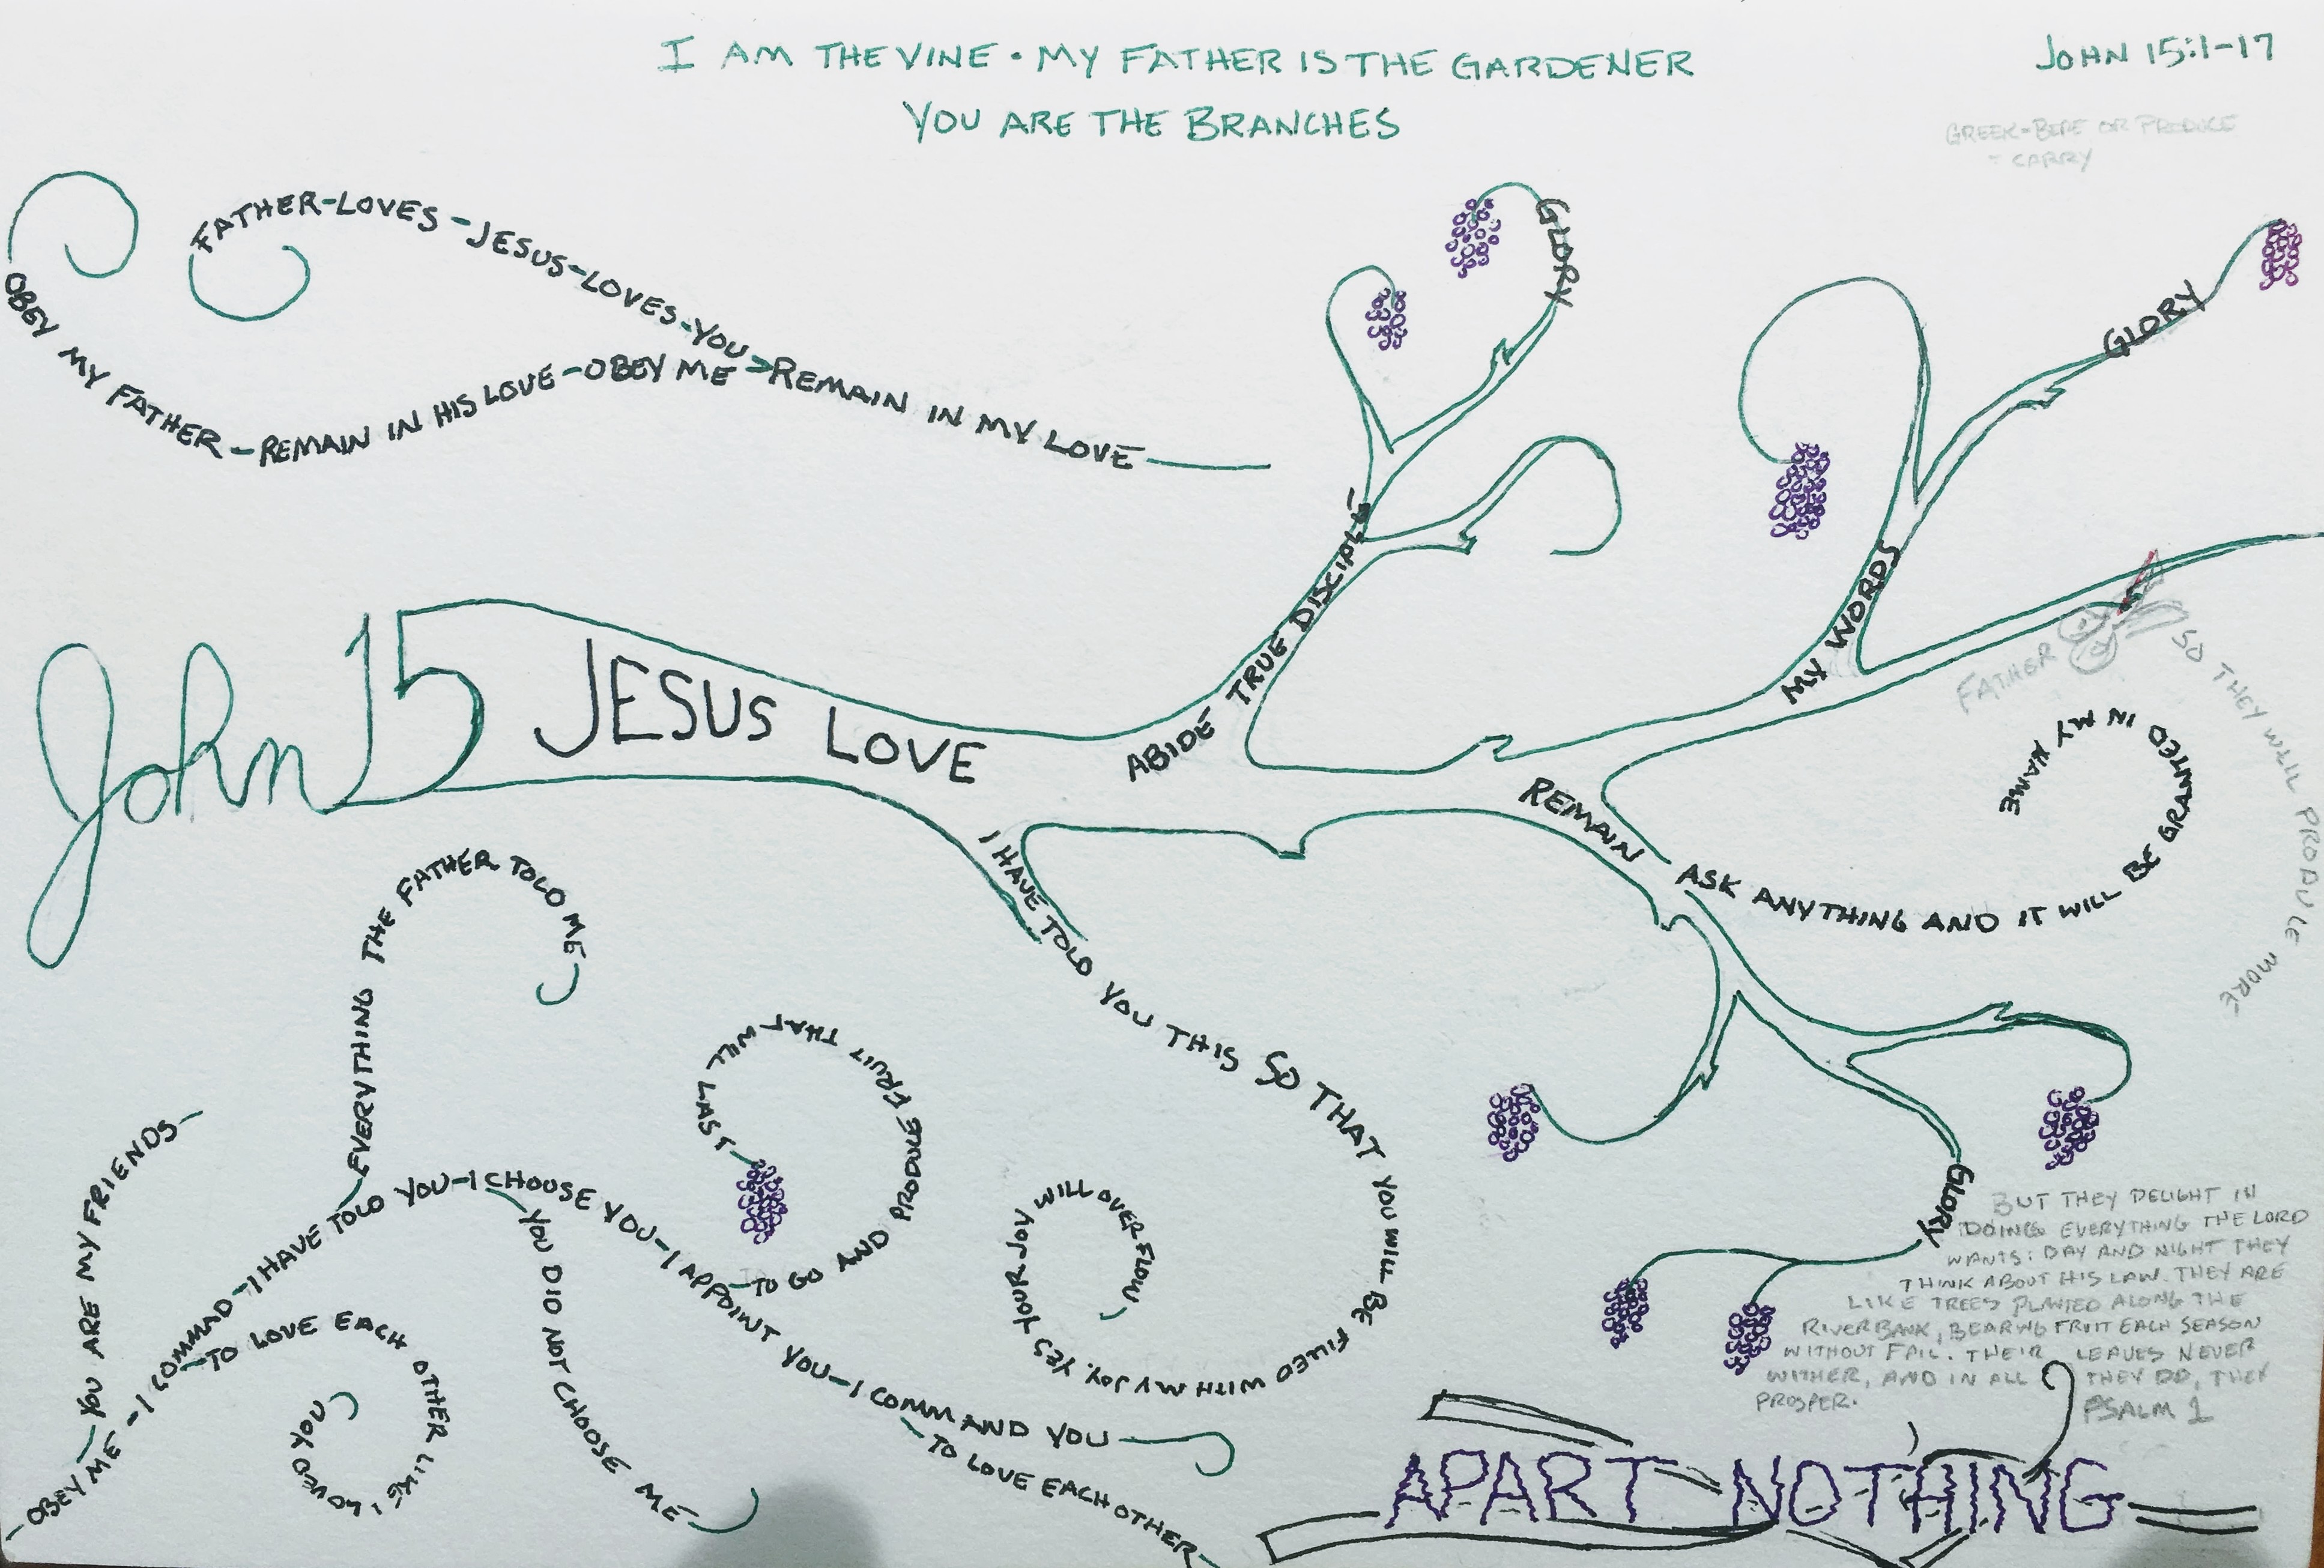 I AM THE VINE • MY FATHER IS THE GARDENER
YOU ARE THE BRANCHES
JOHN 15:1-17
GREEK-BERE OR PRODUCE
- CARRY
FATHER-LOVES-JESUS-LOVES-YOU
OBEY MY FATHER-REMAIN IN HIS LOVE-OBEY ME
REMAIN IN MY LOVE
GLORY
GLORY
John 15
JESUS LOVE
ABIDE TRUE DISCIPLE
MY WORDS
FATHER
SO THEY WILL PRODUCE MORE
REMAIN
ASK ANYTHING AND IT WILL BE GRANTED IN MY NAME
I HAVE TOLD YOU THIS SO THAT YOU WILL BE FILLED WITH MY JOY. YES YOUR JOY WILL OVER FLOW
EVERYTHING THE FATHER TOLD ME
YOU ARE MY FRIENDS
OBEY ME-I COMMAD-I HAVE TOLD YOU-I CHOOSE YOU-I APPOINT YOU-I COMMAND YOU
TO LOVE EACH OTHER LIKE I LOVED YOU
YOU DID NOT CHOOSE ME
TO GO AND PRODUCE FRUIT THAT WILL LAST
TO LOVE EACH OTHER
GLORY
BUT THEY DELIGHT IN
DOING EVERYTHING THE LORD
WANTS: DAY AND NIGHT THEY
THINK ABOUT HIS LAW. THEY ARE
LIKE TREES PLANTED ALONG THE
RIVERBANK, BEARING FRUIT EACH SEASON
WITHOUT FAIL. THEIR LEAVES NEVER
WITHER, AND IN ALL THEY DO, THEY
PROSPER.
PSALM 1
APART NOTHING